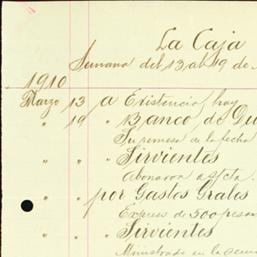 La Caja
Semana del 13 al 19 de
1910
Marzo 13 a Existencia hoy
" 19 " Banco de Gu
Su remesa de la fecha
" " " Sirvientes
Abonaron a s/cta.
" " por Gastos Grales
Expreso de 300 pesos
" " " Sirvientes
Ministrado en la sem